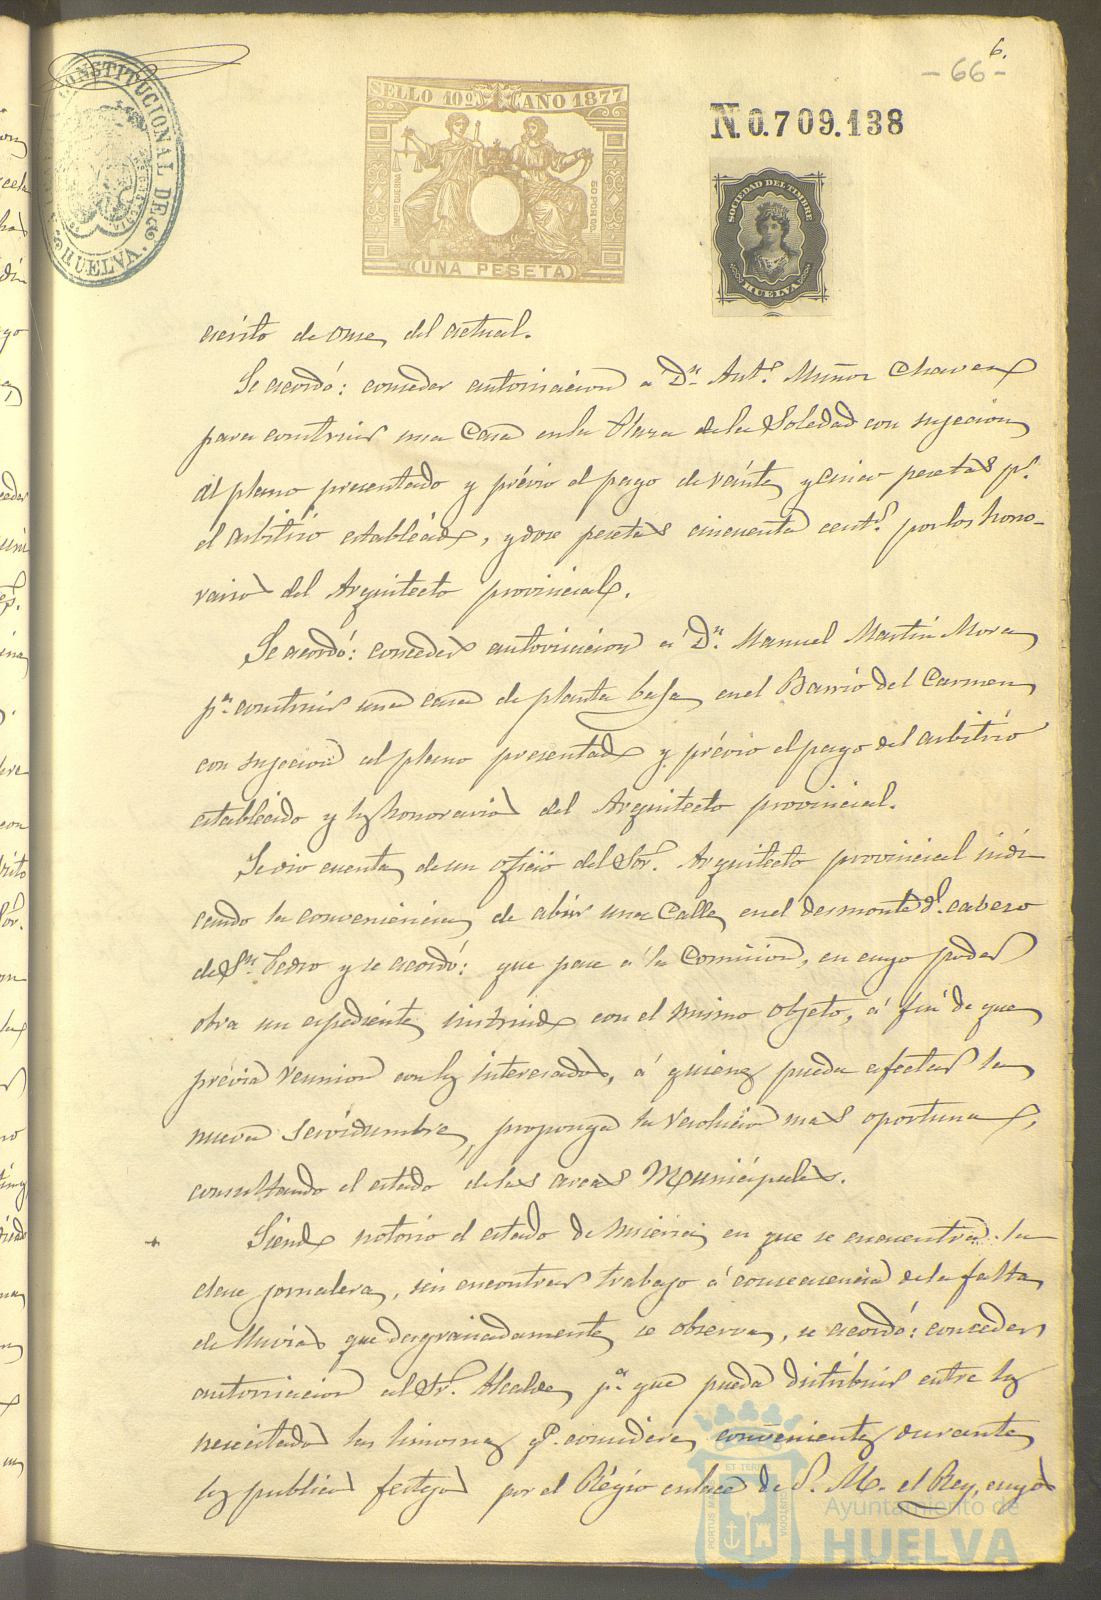 6.
- 66 -
CONSTITUCIONAL DE
HUELVA.
SELLO 10º AÑO 1877
UNA PESETA
N.0.709.138
SOCIEDAD DEL TIMBRE
HUELVA
escrito de once, del actual.
Se acordó: conceder autorizacion a Dn. Antº. Muñoz Chavez
para construir una Casa en la Plaza de la Soledad con sujecion
al plano presentado y prévio el pago de veinte y cinco pesetas pr.
el arbitrio establecido, y doce pesetas cincuenta cents. por los hono-
rarios del Arquitecto provincial.
Se acordó: conceder autorizacion á Dn. Manuel Martin Mora
pa. construir una casa de planta baja en el Barrio del Carmen
con sujecion al plano presentado y prévio el pago del arbitrio
establecido y los honorarios del Arquitecto provincial.
Se dio cuenta de un oficio del Sor. Arquitecto provincial indi
cando la conveniencia de abrir una Calle en el desmonte dl. cabezo
de Sn. Pedro y se acordó: que pase á la Comision, en cuyo poder
obra un espediente instruido con el mismo objeto, á fin de que
prévia reunion con los interesados, á quienes pueda afectar la
nueva servidumbre, proponga la resolucion mas oportuna,
consultando el estado de las arcas Municipales.
Siendo notorio el estado de miseria en que se encuentra la
clase jornalera, sin encontrar trabajo á consecuencia de la falta
de lluvias que desgraciadamente se observa, se acordó: conceder
autorizacion al Sr. Alcalde pa. que pueda distribuir entre los
necesitados las limosnas qe. considere convenientes durante
los publicos festejos por el Régio enlace de S. M. el Rey, cuyos
PORTUS MARIS ET TERRAE CUSTODIA
Ayuntamiento de
HUELVA